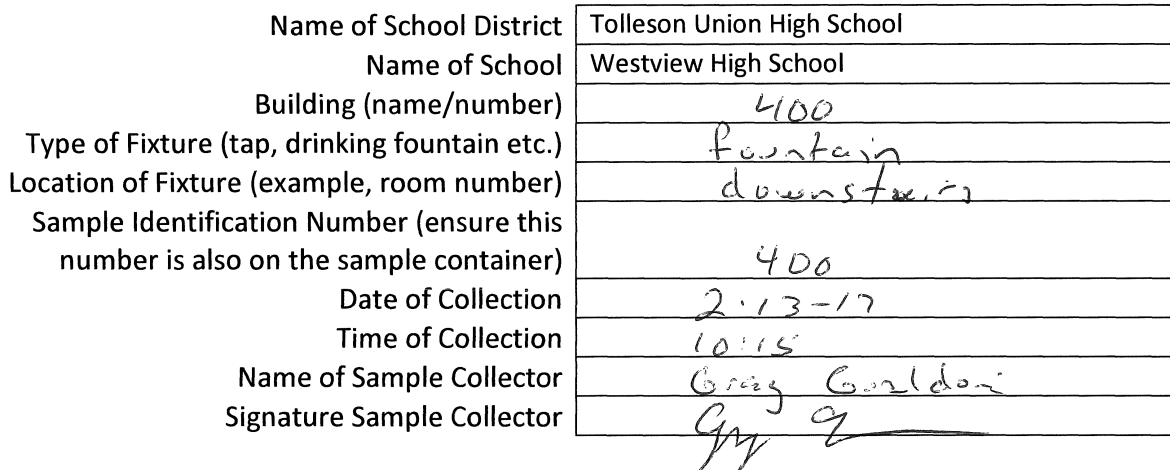 Name of School District Tolleson Union High School
Name of School Westview High School
Building (name/number) 400
Type of Fixture (tap, drinking fountain etc.) fountain
Location of Fixture (example, room number) downstairs
Sample Identification Number (ensure this
number is also on the sample container) 400
Date of Collection 2-13-17
Time of Collection 10:15
Name of Sample Collector
Signature Sample Collector